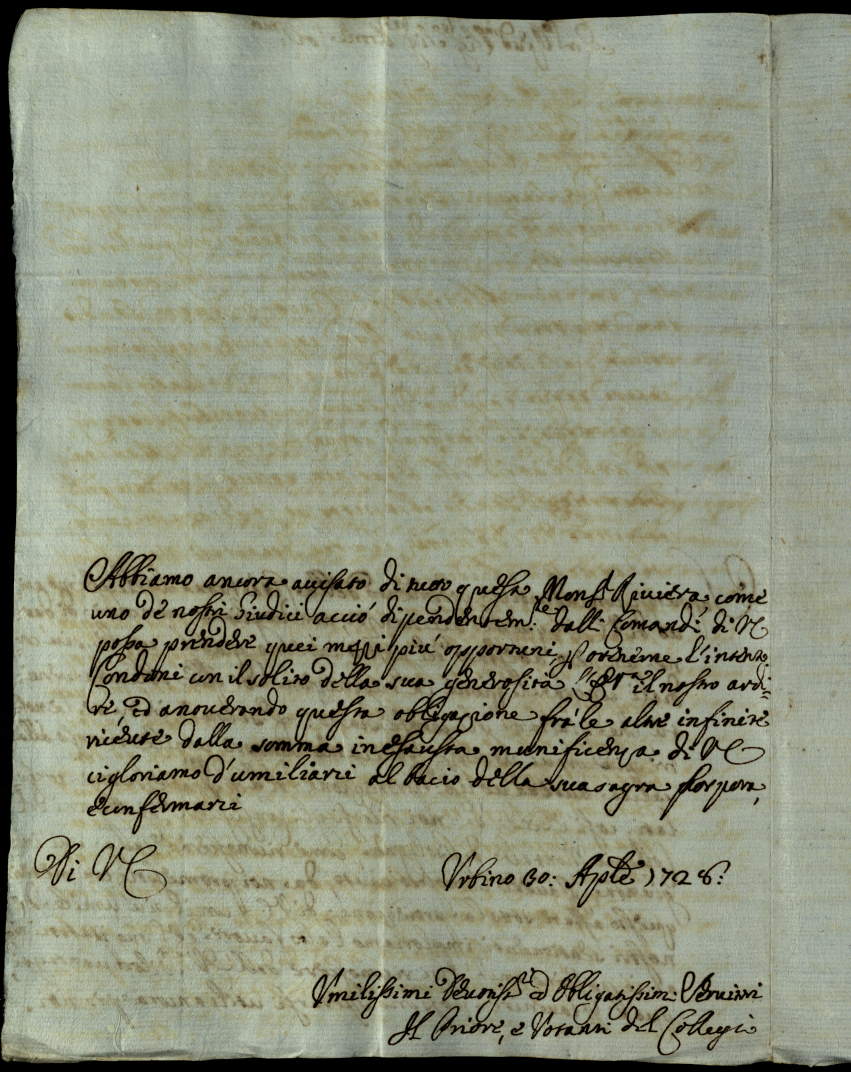 Abbiamo ancora avisato di nuovo questo Mons.r Riviera come
uno de nostri Giudici acciò dipendentem.te dalli Comandi di VE
possa prendere quei mezzi più opportuni, p otenerne l'intento
Condoni con il solito della sua generosità il nostro ardi-
re, ed anoverando questa obligazione frà le altre infinite
riceute dalla somma inesausta munificenza di VE
ci gloriamo d'umiliarci al bacio della sua sagra Porpora,
e confermarci
Di VE
Urbino 30: Aple 1728:
Umilissimi Devotis.mi ed Obligatissim: Servitri
Il Priore, e Votanti del Collegio